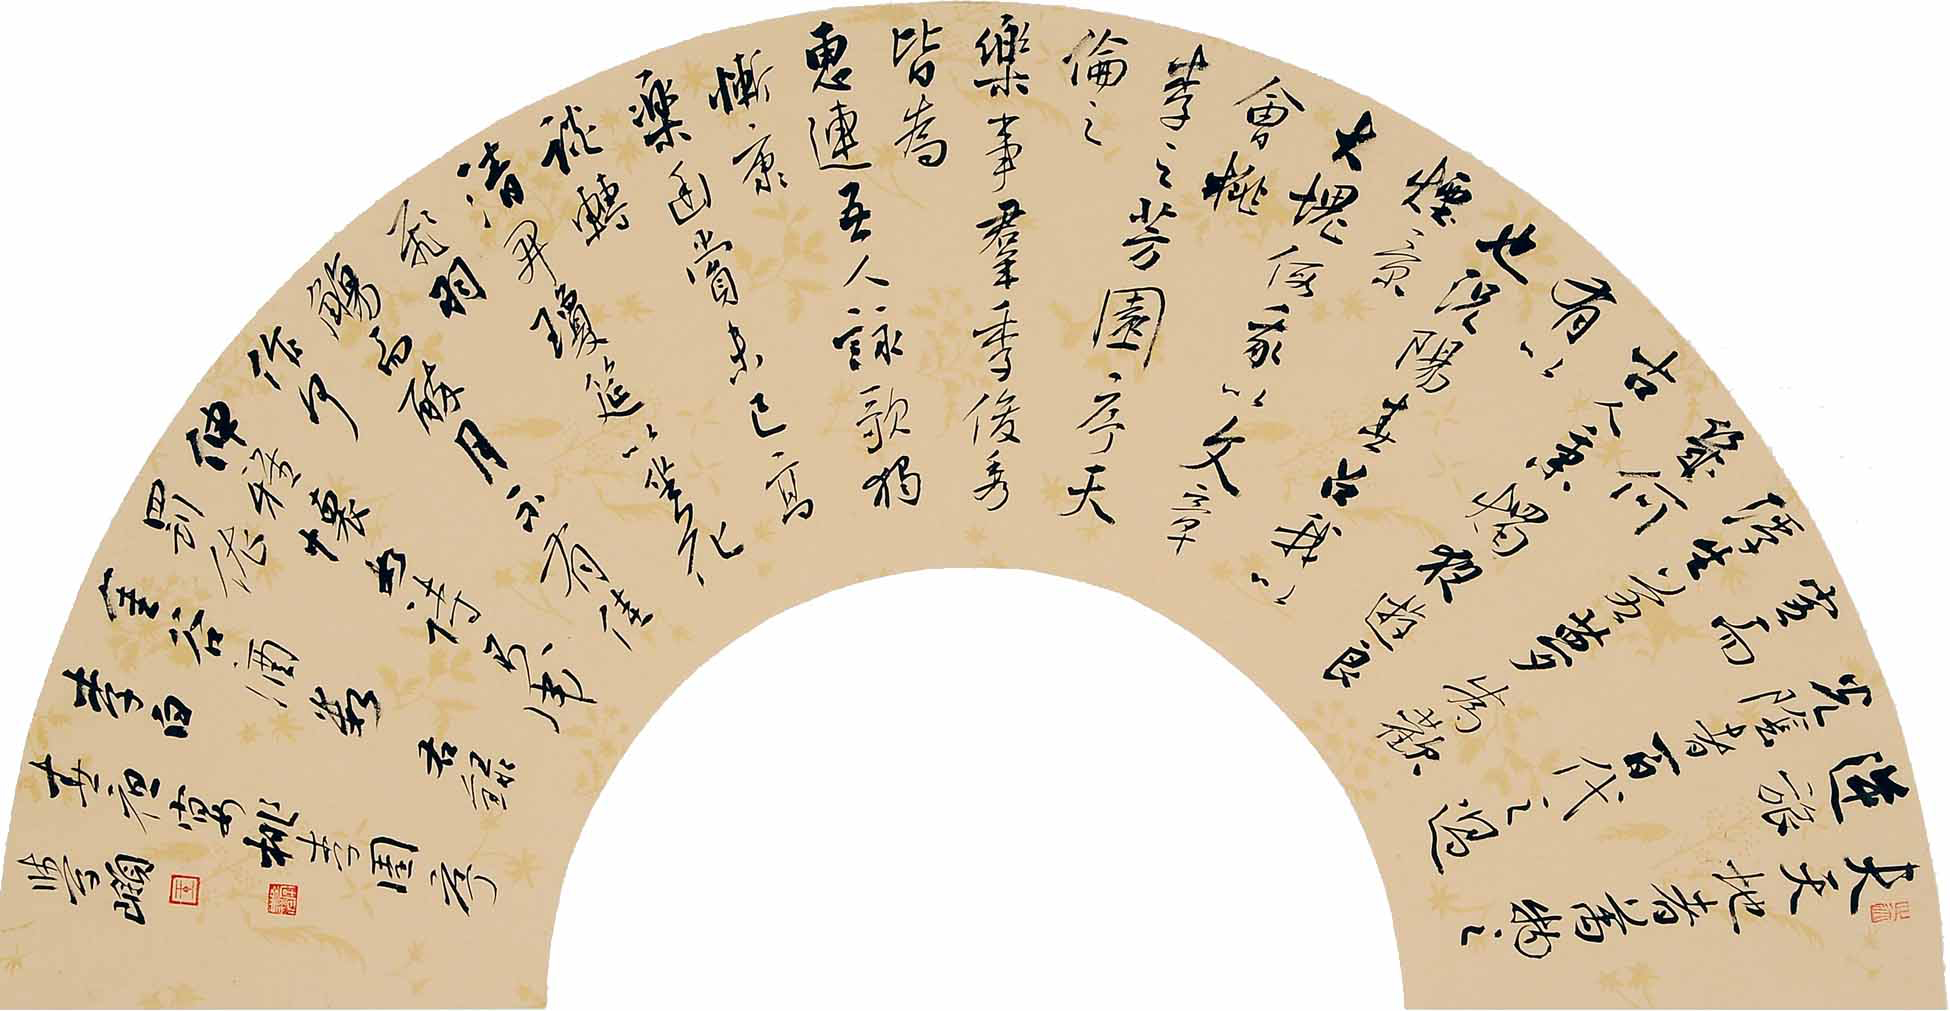 夫天地者萬物之
逆旅
光陰者百代之過
客而
浮生若夢為歡
幾何
古人秉燭夜遊良
有以
也況陽春召我以
煙景
大塊假我以文章
會桃
李之芳園序天
倫之
樂事群季俊秀
皆為
惠連吾人詠歌獨
慚康
樂幽賞未已高
談轉
清開瓊筵以坐花
飛羽
觴而醉月不有佳
作何
伸雅懷如詩不成
罰依
金谷酒數右錄
李白
春夜宴桃李園序